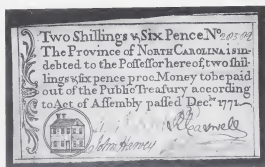 Two Shillings & Six Pence. No
The Province of NORTH CAROLINA is in-
debted to the Possessor hereof, two shil-
lings & six pence proc. Money to be paid
out of the Public Treasury according
to Act of Assembly passed Decr. 1771
R Caswell
John Harvey